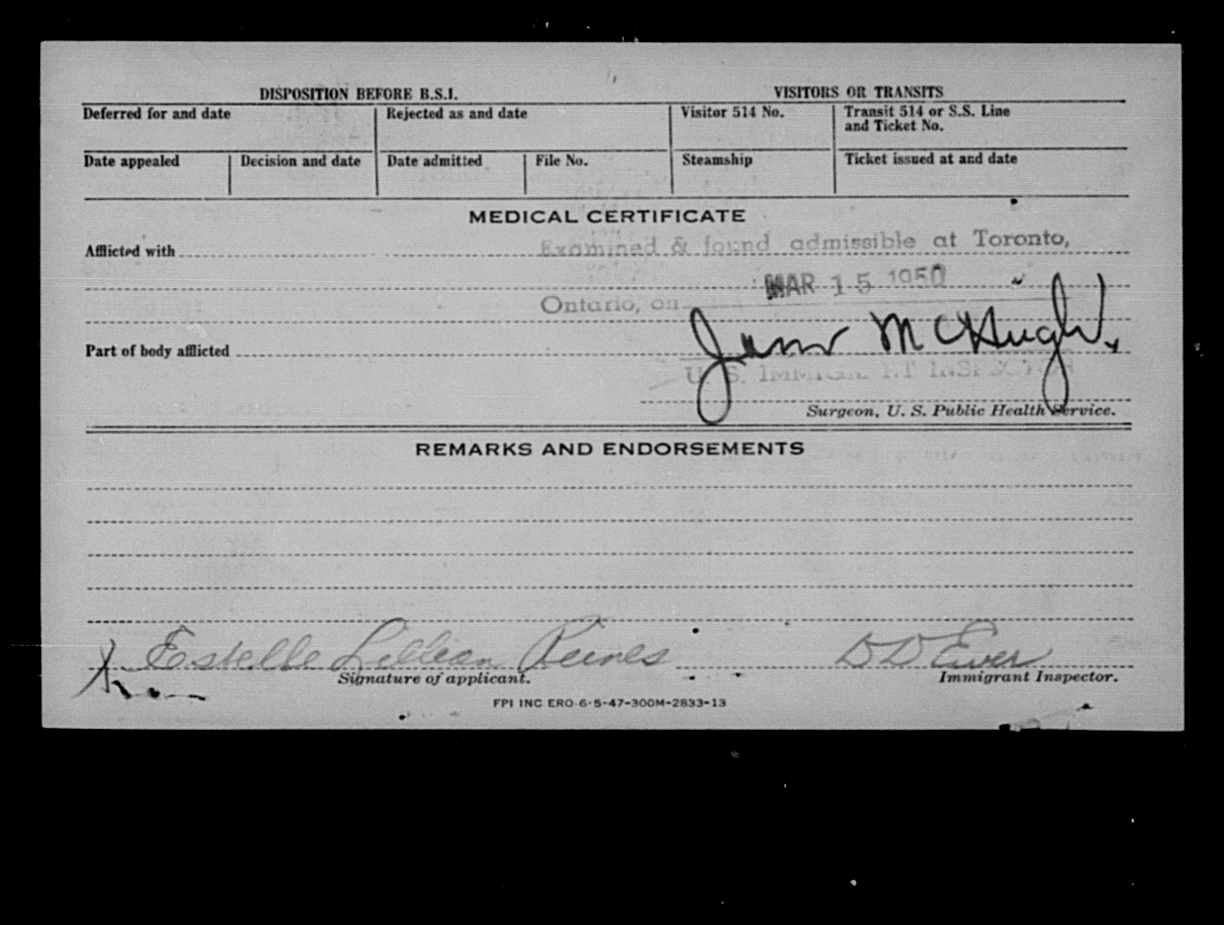 DISPOSITION BEFORE B.S.I. VISITORS OR TRANSITS
Deferred for and date Rejected as and date Visitor 514 No. Transit 514 or S.S. Line
and Ticket No.
Date appealed Decision and date Date admitted File No. Steamship Ticket issued at and date
MEDICAL CERTIFICATE
Afflicted with Examined & found admissible at Toronto,
MAR 15 1950
Ontario, on
Part of body afflicted McHugh
U. S. IMMIGRANT INSPECTOR
Surgeon, U. S. Public Health Service.
REMARKS AND ENDORSEMENTS
Estelle Lillian D D Ewer
Signature of applicant. Immigrant Inspector.
FPI INC ERO-6-5-47-300M-2833-13